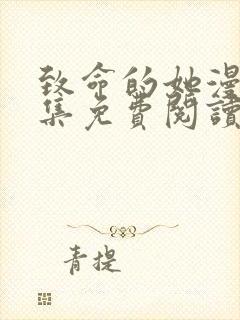 致命的她漫
集免費閱讀
青提